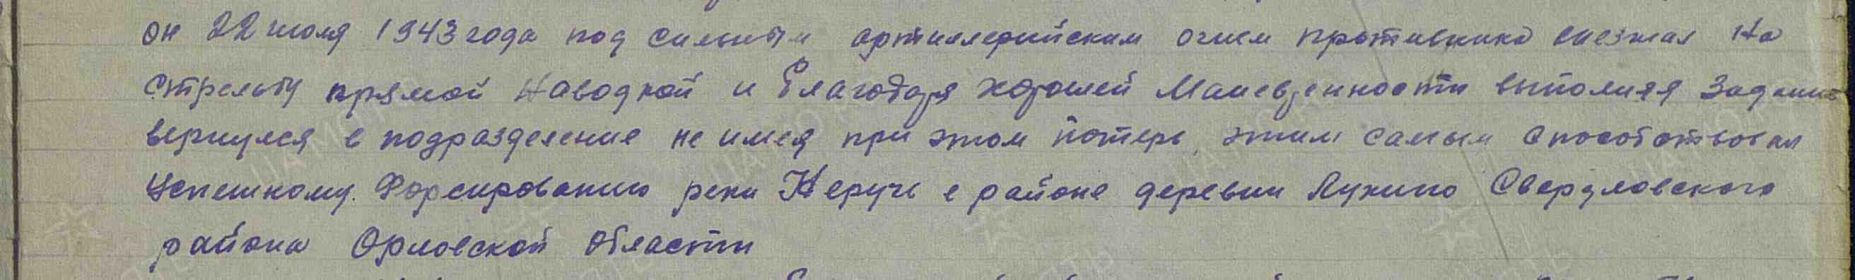 он 22 июля 1943 года под сильным артиллерийским огнем противника выезжал На
стрельбу прямой Наводкой и Благодаря хорошей Маневренности выполняя Задание
вернулся в подразделение не имея при этом потерь, этим самым способствовал
Успешному. Форсированию реки Неручь в районе деревни Лунино Свердловского
района Орловской области